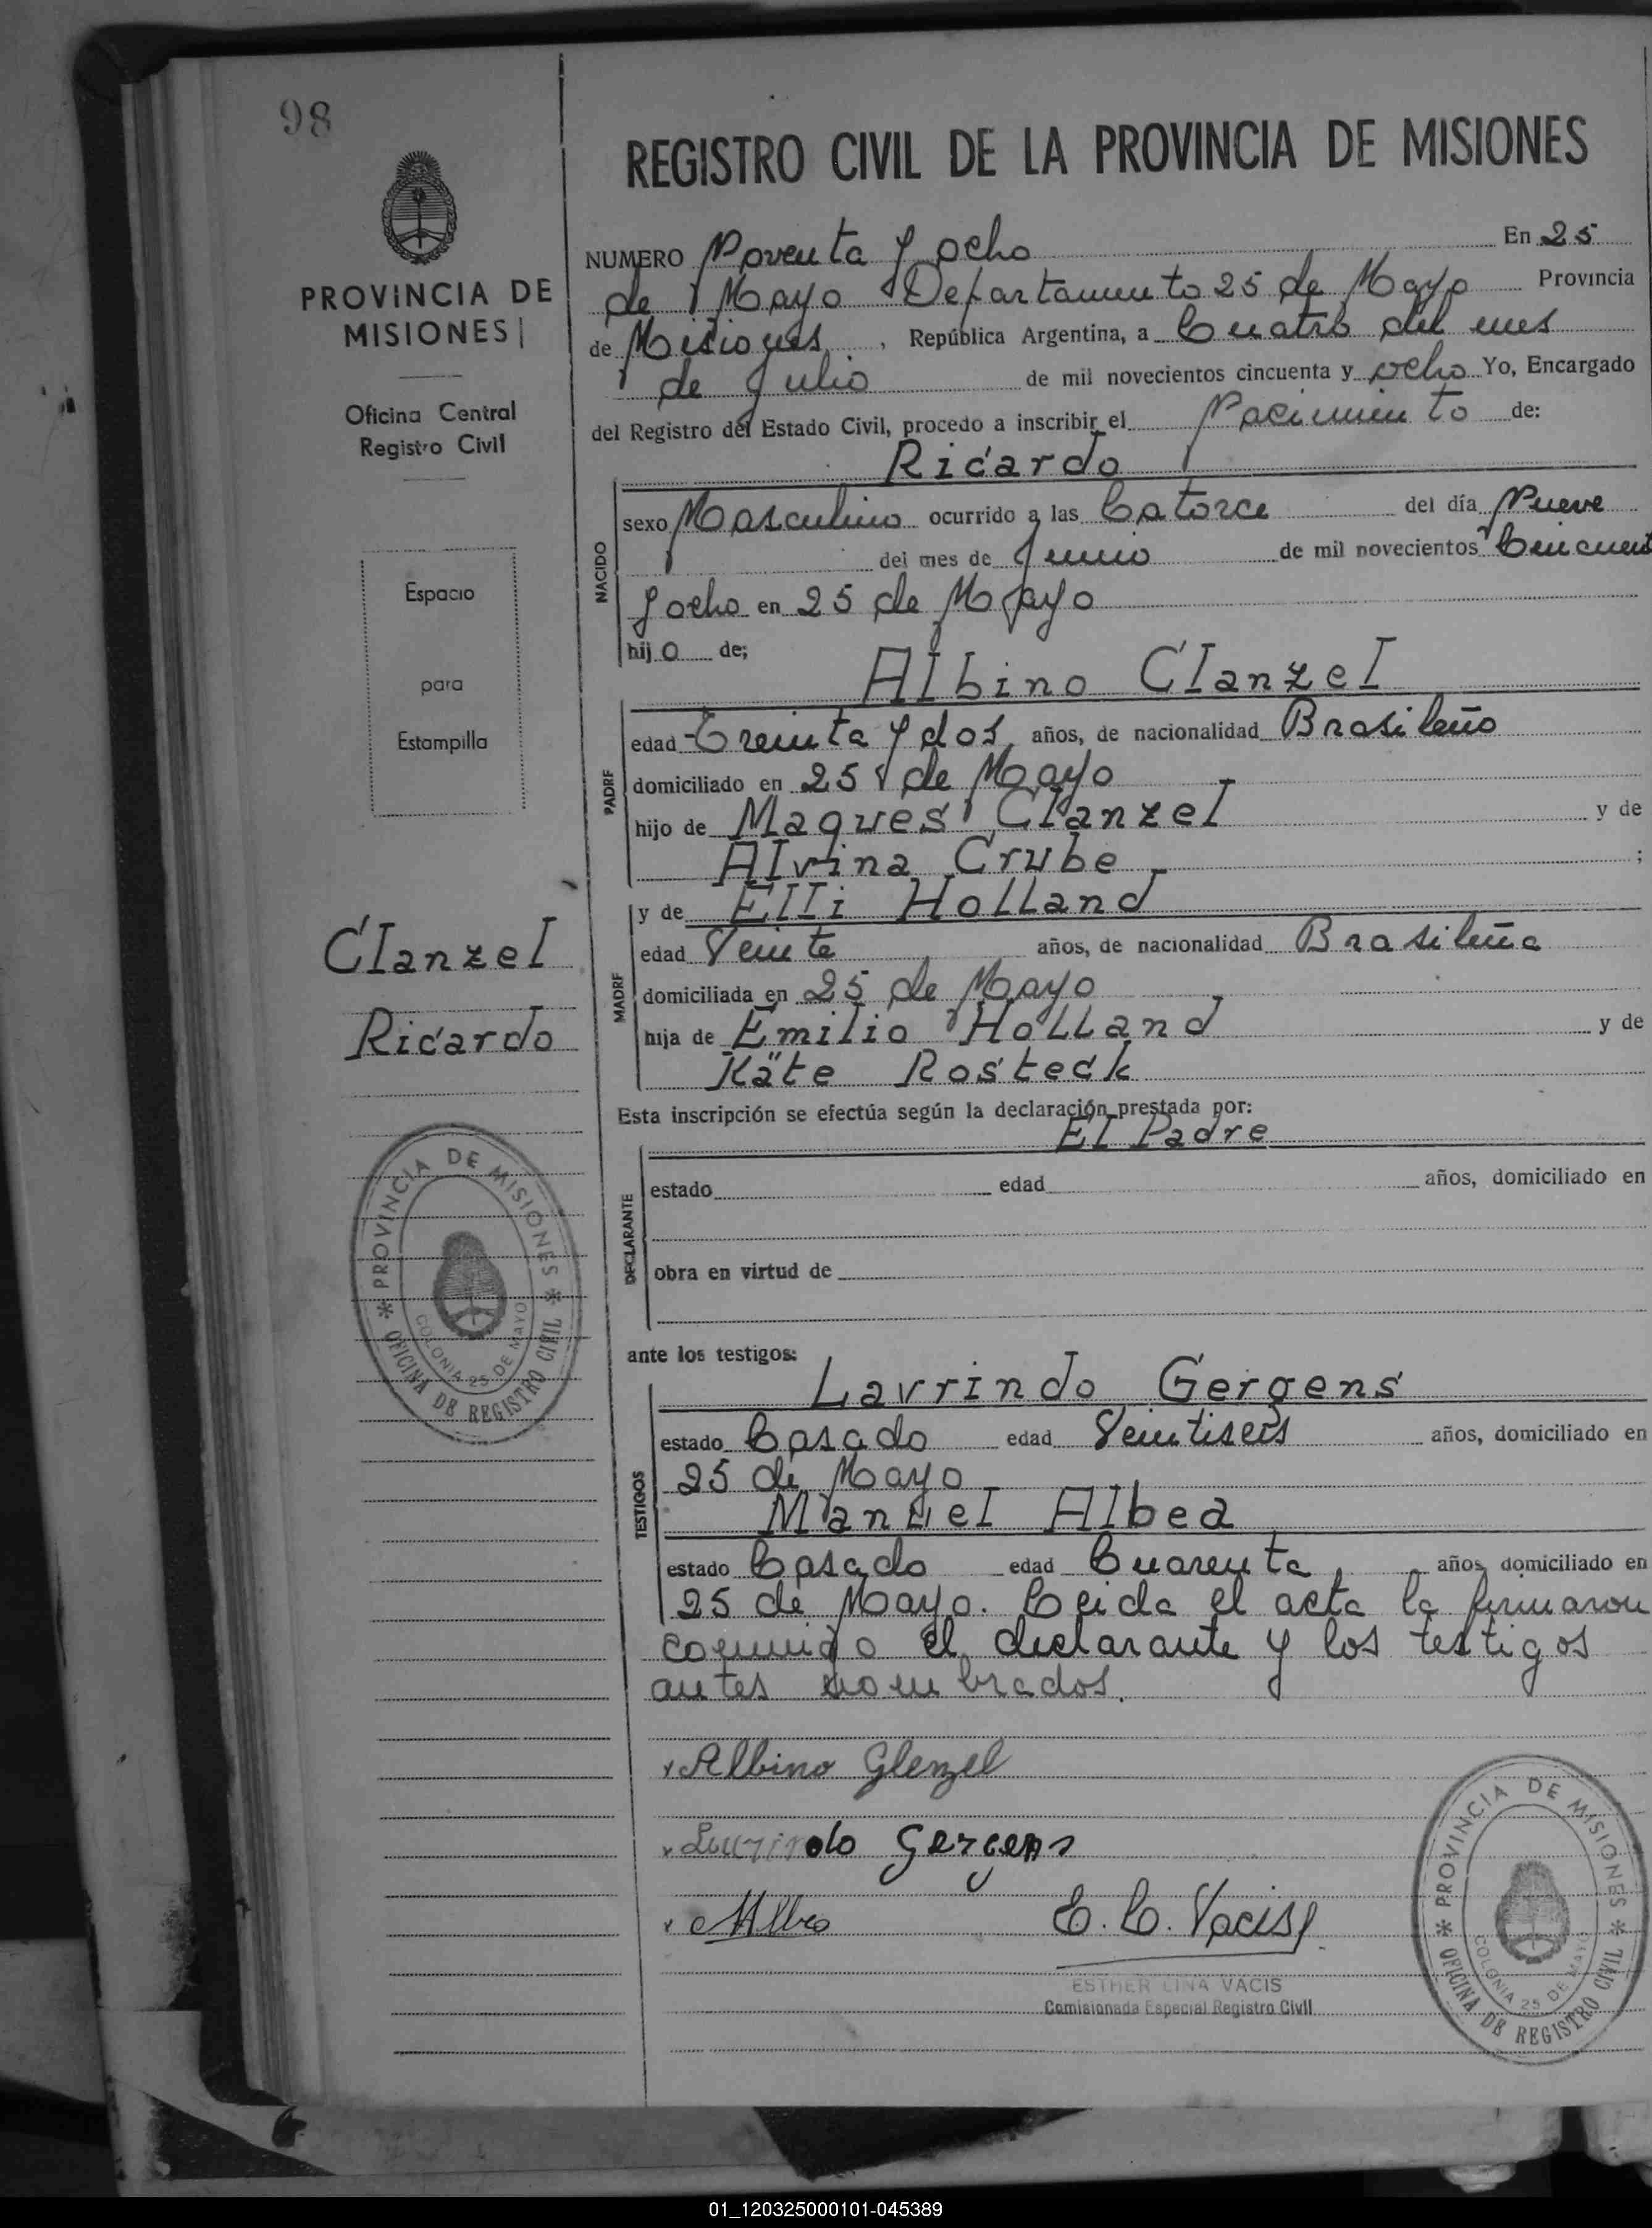 98
PROVINCIA DE
MISIONES
Oficina Central
Registro Civil
Espacio
para
Estampilla
Clanzel
Ricardo
PROVINCIA DE MISIONES
COLONIA 25 DE MAYO
OFICINA DE REGISTRO CIVIL
REGISTRO CIVIL DE LA PROVINCIA DE MISIONES
NUMERO Noventa y ocho En 25
de Mayo Departamento 25 de Mayo Provincia
de Misiones, República Argentina, a Cuatro del mes
de Julio de mil novecientos cincuenta y ocho Yo, Encargado
del Registro del Estado Civil, procedo a inscribir el Nacimiento de:
Ricardo
NACIDO
sexo Masculino ocurrido a las Catorce del día Nueve
del mes de Junio de mil novecientos Cincuent
y ocho en 25 de Mayo
hijo de;
Albino Clanzel
PADRE
edad Treinta y dos años, de nacionalidad Brasileño
domiciliado en 25 de Mayo
hijo de Maques Clanzel y de
Alvina Crube ;
y de Elli Holland
MADRE
edad Veinte años, de nacionalidad Brasileña
domiciliada en 25 de Mayo
hija de Emilio Holland y de
Käte Rosteck
Esta inscripción se efectúa según la declaración prestada por:
El Padre
DECLARANTE
estado edad años, domiciliado en
obra en virtud de
ante los testigos:
Lavrindo Gergens
TESTIGOS
estado Casado edad Veintiseis años, domiciliado en
25 de Mayo
Manuel Albea
estado Casado edad Cuarenta años, domiciliado en
25 de Mayo. Leida el acta la firmaron
conmigo el declarante y los testigos
antes nombrados.
Albino Glenzel
Laurindo Gergens
MAlbea E. L. Vacis
ESTHER LINA VACIS
Comisionada Especial Registro Civil
PROVINCIA DE MISIONES
COLONIA 25 DE MAYO
OFICINA DE REGISTRO CIVIL
01_120325000101-045389